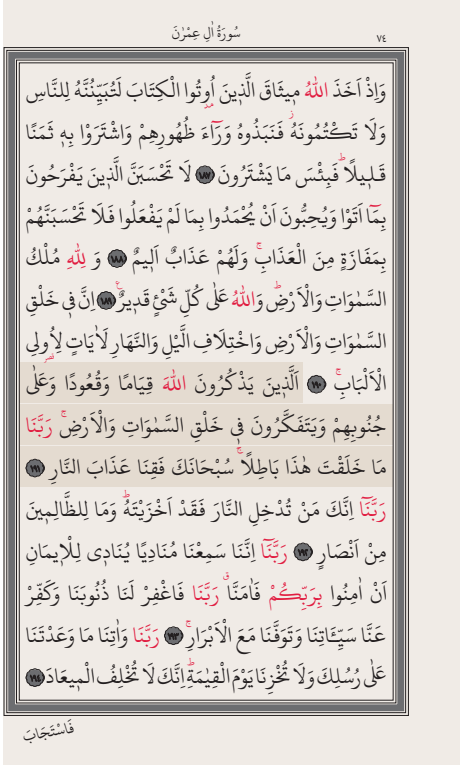 سُورَةُ اٰلِ عِمْرٰنَ
٧٤
وَاِذْ اَخَذَ اللّٰهُ م۪يثَاقَ الَّذ۪ينَ اُو۫تُوا الْكِتَابَ لَتُبَيِّنُنَّهُ لِلنَّاسِ
وَلَا تَكْتُمُونَهُۘ فَنَبَذُوهُ وَرَٓاءَ ظُهُورِهِمْ وَاشْتَرَوْا بِه۪ ثَمَنًا
قَل۪يلًاۜ فَبِئْسَ مَا يَشْتَرُونَ ﴿١٨٧﴾ لَا تَحْسَبَنَّ الَّذ۪ينَ يَفْرَحُونَ
بِمَٓا اَتَوْا وَيُحِبُّونَ اَنْ يُحْمَدُوا بِمَا لَمْ يَفْعَلُوا فَلَا تَحْسَبَنَّهُمْ
بِمَفَازَةٍ مِنَ الْعَذَابِۚ وَلَهُمْ عَذَابٌ اَل۪يمٌ ﴿١٨٨﴾ وَ لِلّٰهِ مُلْكُ
السَّمٰوَاتِ وَالْاَرْضِۜ وَاللّٰهُ عَلٰى كُلِّ شَيْءٍ قَد۪يرٌ۟ ﴿١٨٩﴾ اِنَّ ف۪ي خَلْقِ
السَّمٰوَاتِ وَالْاَرْضِ وَاخْتِلَافِ الَّيْلِ وَالنَّهَارِ لَاٰيَاتٍ لِاُو۬لِي
الْاَلْبَابِۚ ﴿١٩٠﴾ اَلَّذ۪ينَ يَذْكُرُونَ اللّٰهَ قِيَامًا وَقُعُودًا وَعَلٰى
جُنُوبِهِمْ وَيَتَفَكَّرُونَ ف۪ي خَلْقِ السَّمٰوَاتِ وَالْاَرْضِۚ رَبَّنَا
مَا خَلَقْتَ هٰذَا بَاطِلًاۚ سُبْحَانَكَ فَقِنَا عَذَابَ النَّارِ ﴿١٩١﴾
رَبَّنَٓا اِنَّكَ مَنْ تُدْخِلِ النَّارَ فَقَدْ اَخْزَيْتَهُۜ وَمَا لِلظَّالِم۪ينَ
مِنْ اَنْصَارٍ ﴿١٩٢﴾ رَبَّنَٓا اِنَّنَا سَمِعْنَا مُنَادِيًا يُنَاد۪ي لِلْا۪يمَانِ
اَنْ اٰمِنُوا بِرَبِّكُمْ فَاٰمَنَّاۗ رَبَّنَا فَاغْفِرْ لَنَا ذُنُوبَنَا وَكَفِّرْ
عَنَّا سَيِّـَٔاتِنَا وَتَوَفَّنَا مَعَ الْاَبْرَارِۚ ﴿١٩٣﴾ رَبَّنَا وَاٰتِنَا مَا وَعَدْتَنَا
عَلٰى رُسُلِكَ وَلَا تُخْزِنَا يَوْمَ الْقِيٰمَةِۜ اِنَّكَ لَا تُخْلِفُ الْم۪يعَادَ ﴿١٩٤﴾
فَاسْتَجَابَ